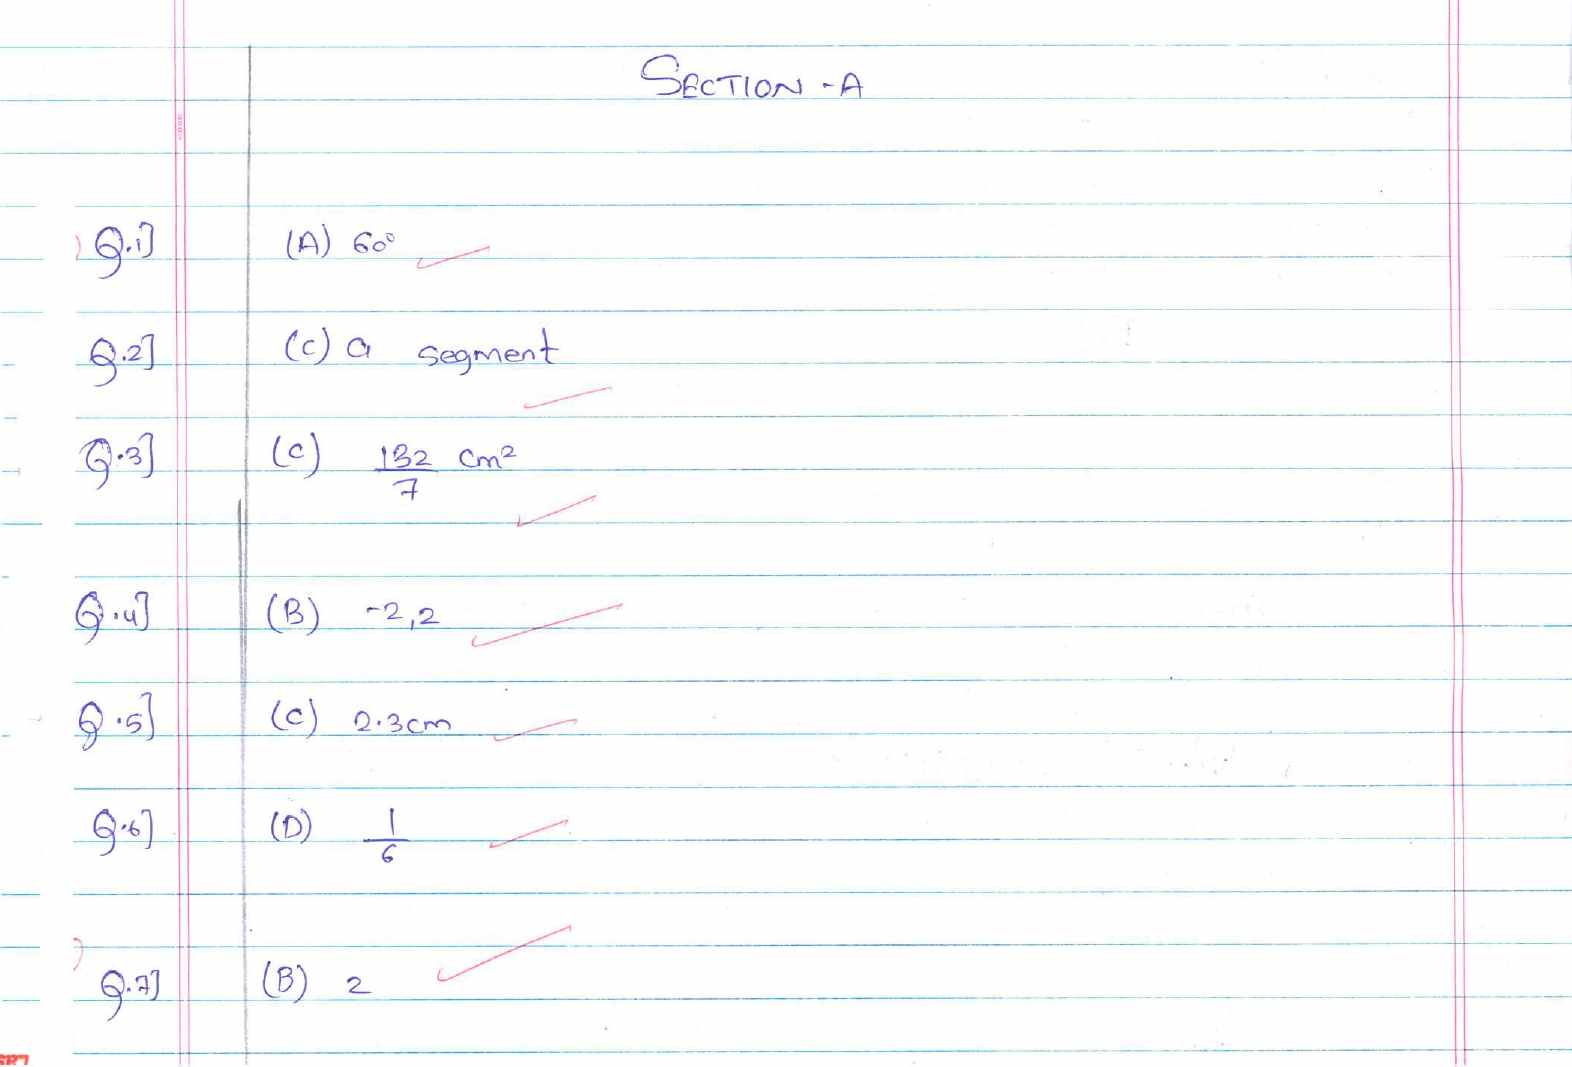 SECTION - A
Q.1] (A) 60°
Q.2] (C) a segment
Q.3] (C) 132/7 cm²
Q.4] (B) -2,2
Q.5] (C) 2.3cm
Q.6] (D) 1/6
Q.7] (B) 2